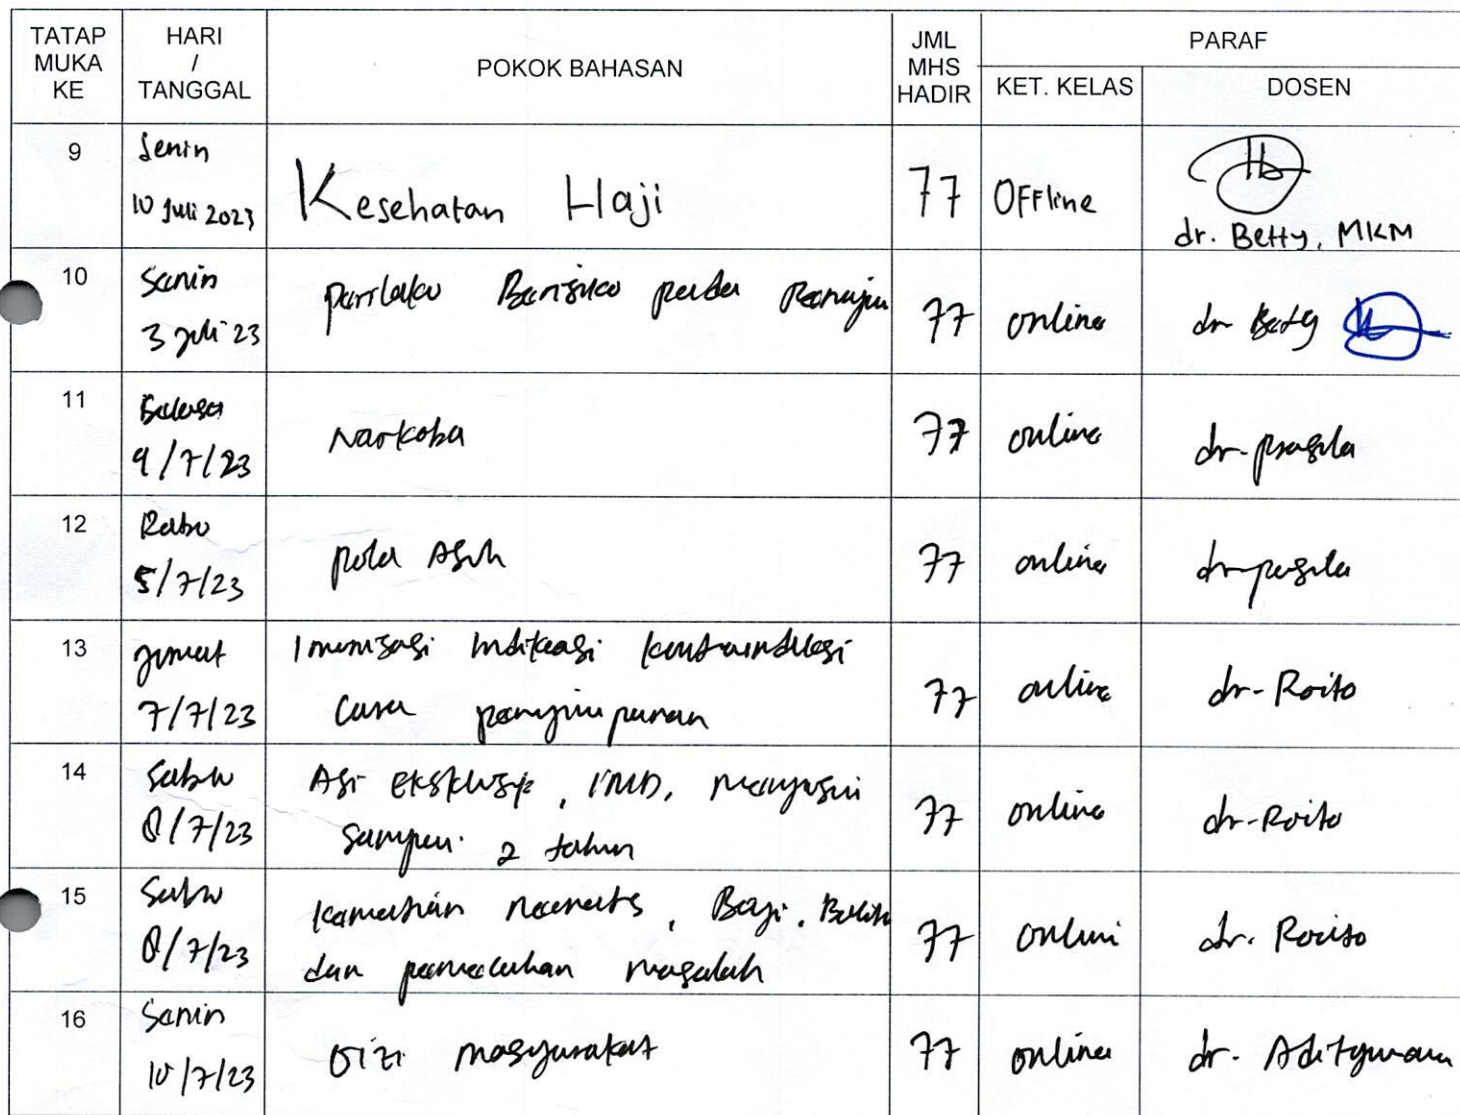 TATAP MUKA KE
HARI / TANGGAL
POKOK BAHASAN
JML MHS HADIR
PARAF
KET. KELAS
DOSEN
9 Senin 10 Juli 2023 Kesehatan Haji 77 Offline dr. Betty, MKM
10 Senin 3 Juli 23 Perilaku Berisiko pada Remaja 77 online dr Betty
11 Selasa /7/23 Narkoba 77 online dr.
12 Rabu 5/7/23 pola Asuh 77 online dr.
13 Jumat 7/7/23 Imunisasi Indikasi kontraindikasi
cara penyimpanan 77 online dr. Roito
14 Sabtu 8/7/23 Asi Eksklusif, IMD, menyusui
sampai 2 tahun 77 online dr. Roito
15 Sabtu 8/7/23 kematian neonatus, Bayi, Balita
dan pemecahan masalah 77 online dr. Roito
16 Senin 10/7/23 Gizi masyarakat 77 online dr.